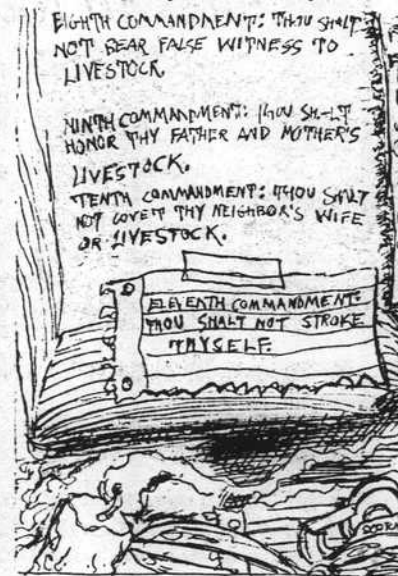 EIGHTH COMMANDMENT: THOU SHALT
NOT BEAR FALSE WITNESS TO
LIVESTOCK.
NINTH COMMANDMENT: THOU SH-LT
HONOR THY FATHER AND MOTHER'S
LIVESTOCK.
TENTH COMMANDMENT: THOU SHALT
NOT COVET THY NEIGHBOR'S WIFE
OR LIVESTOCK.
ELEVENTH COMMANDMENT:
THOU SHALT NOT STROKE
THYSELF.